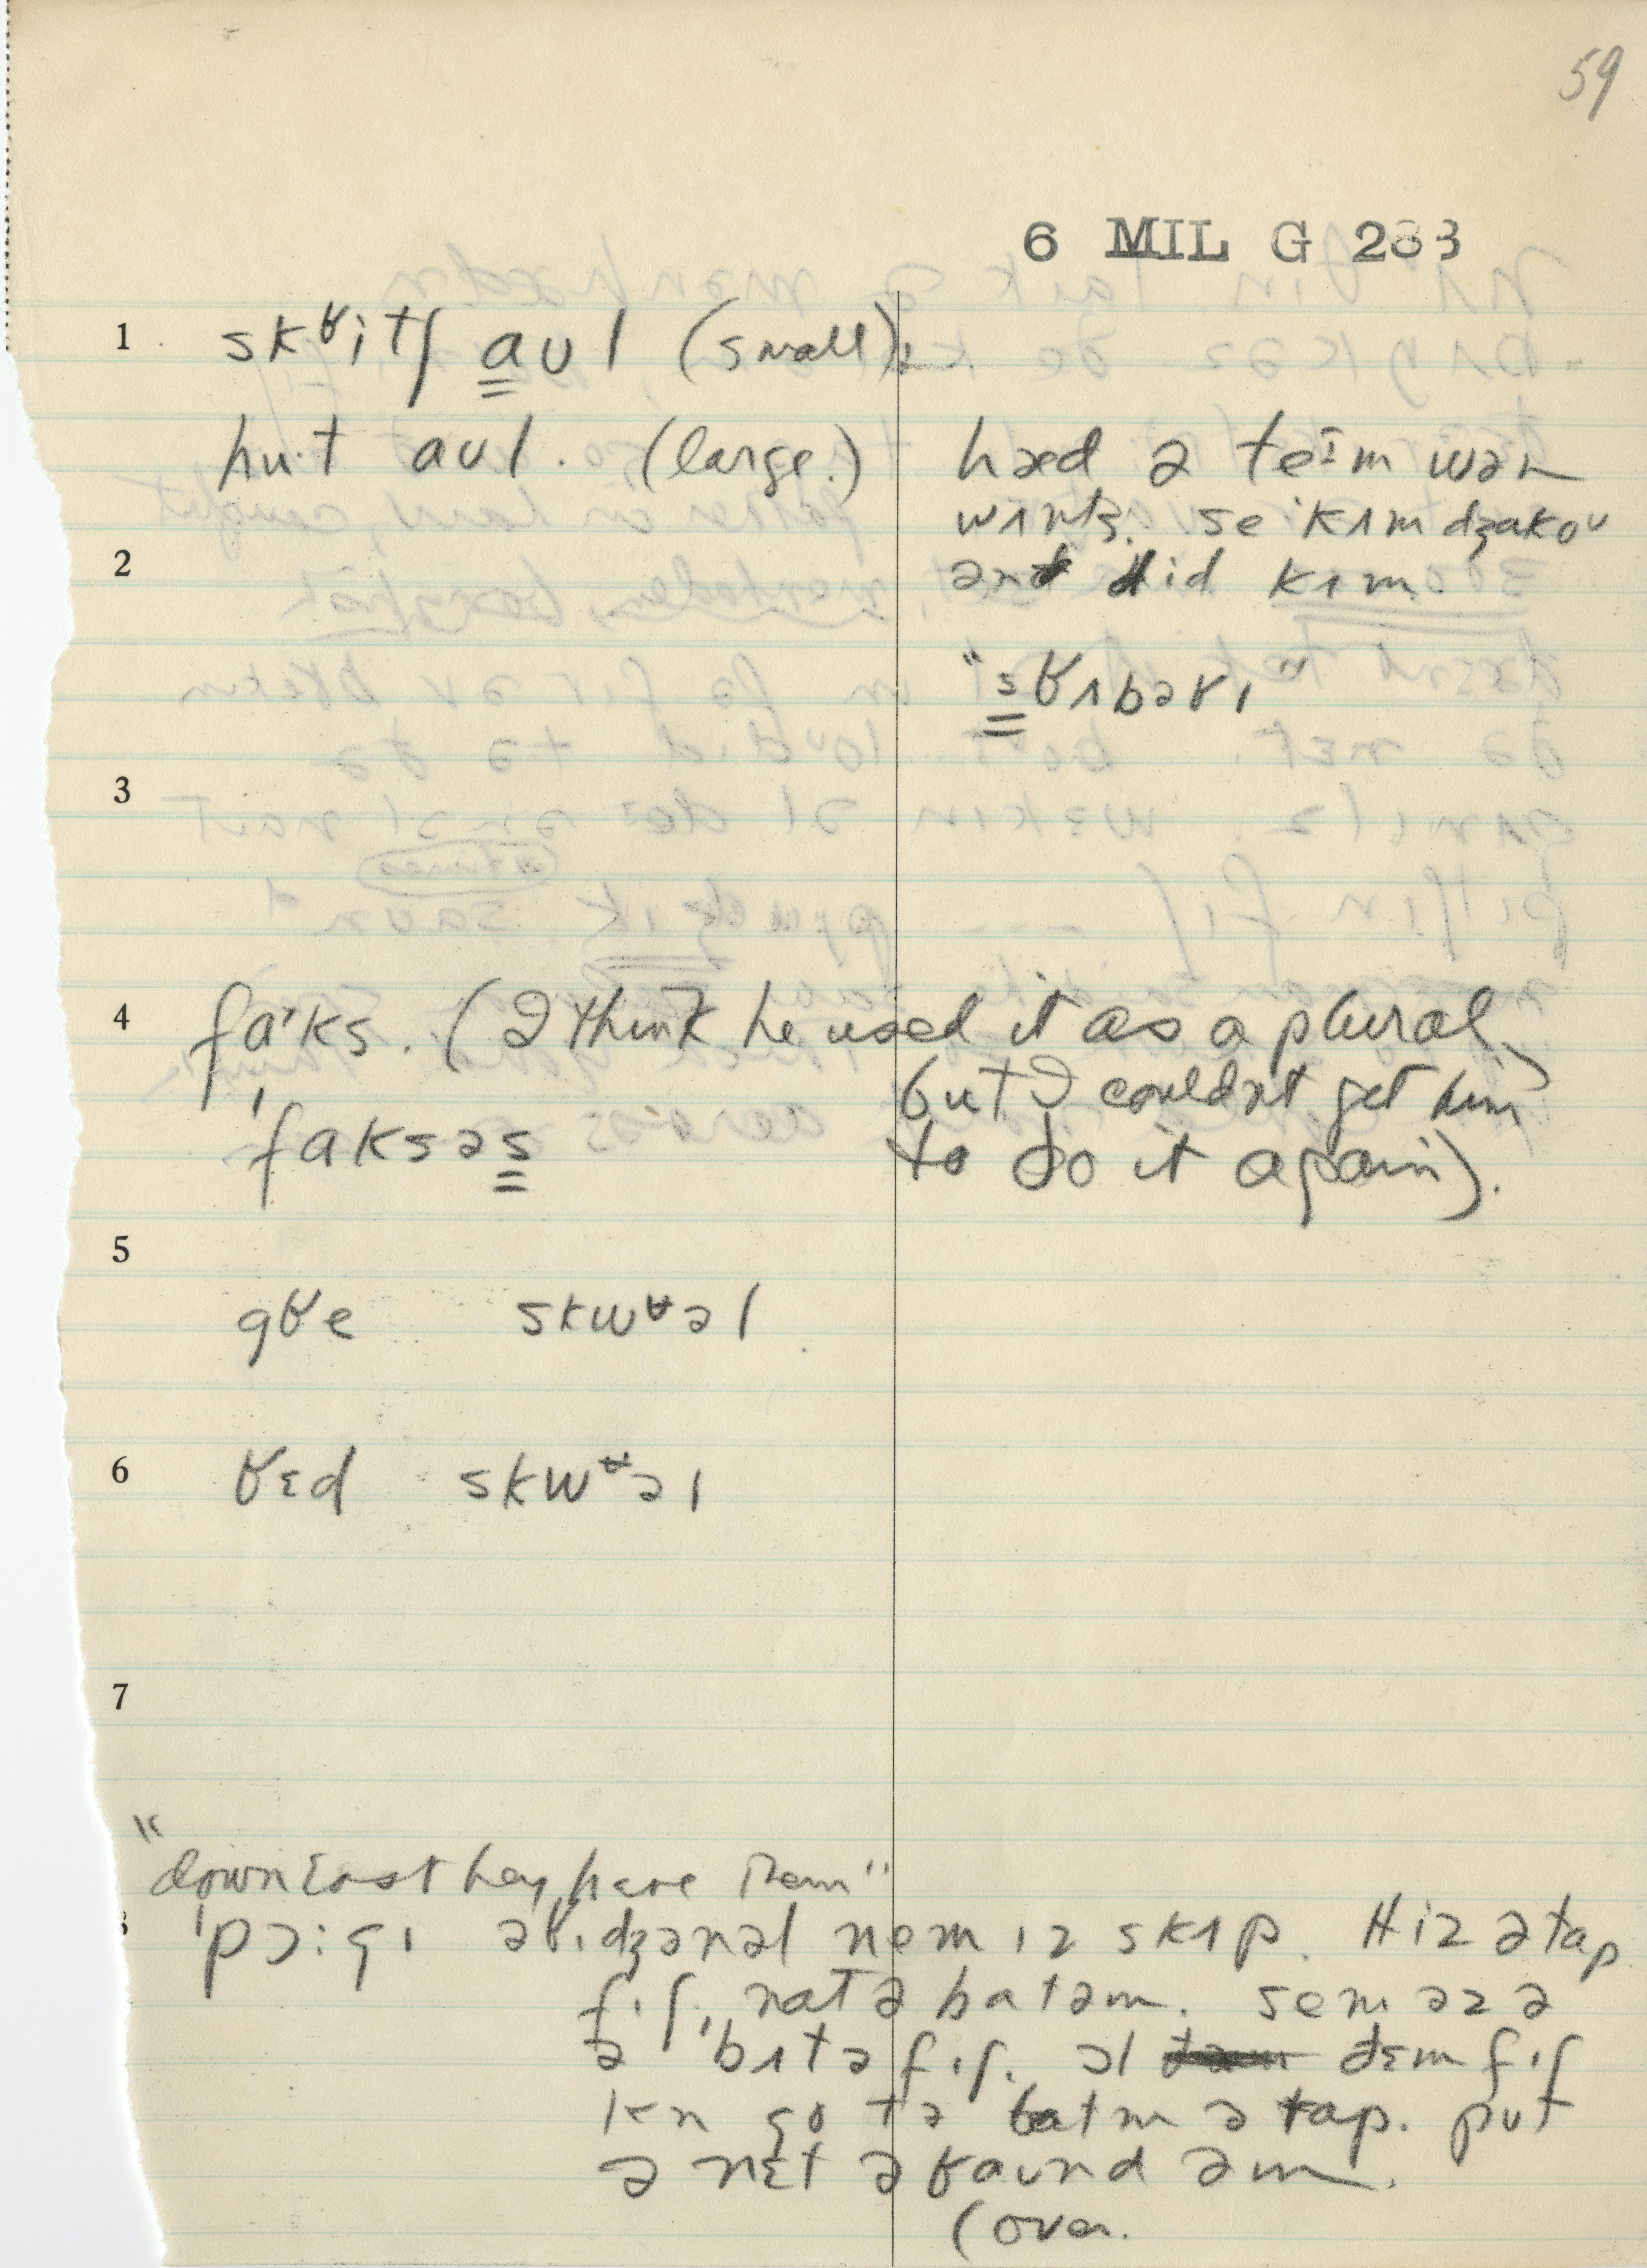 59
6 MIL G 283
1 skʁitʃ aʊl (small);
hu·t aʊl. (large.)
hæd ə teɪm wən
se kʌm dʒakoʊ
ənd did kʌm
"sʁʌbəʁɪ"
2
3
4 faˈks. (I think he used it as a plural,
but I couldn't get him
ˈfaksəs to do it again).
5
gʁe skwʁəl
6 ʁɛd skwʁəl
7
"down East they have them"
8 ˈpɔ:gɪ əʁɪdʒənəl nem ɪz skʌp. Hiz ə tap
fɪʃ, nat ə batəm. sem əz ə
ə ˈbʌtəfɪʃ. əl dɛm fɪʃ
kn go tə batm ə tap. put
ə nɛt əʁaund əm.
(over.